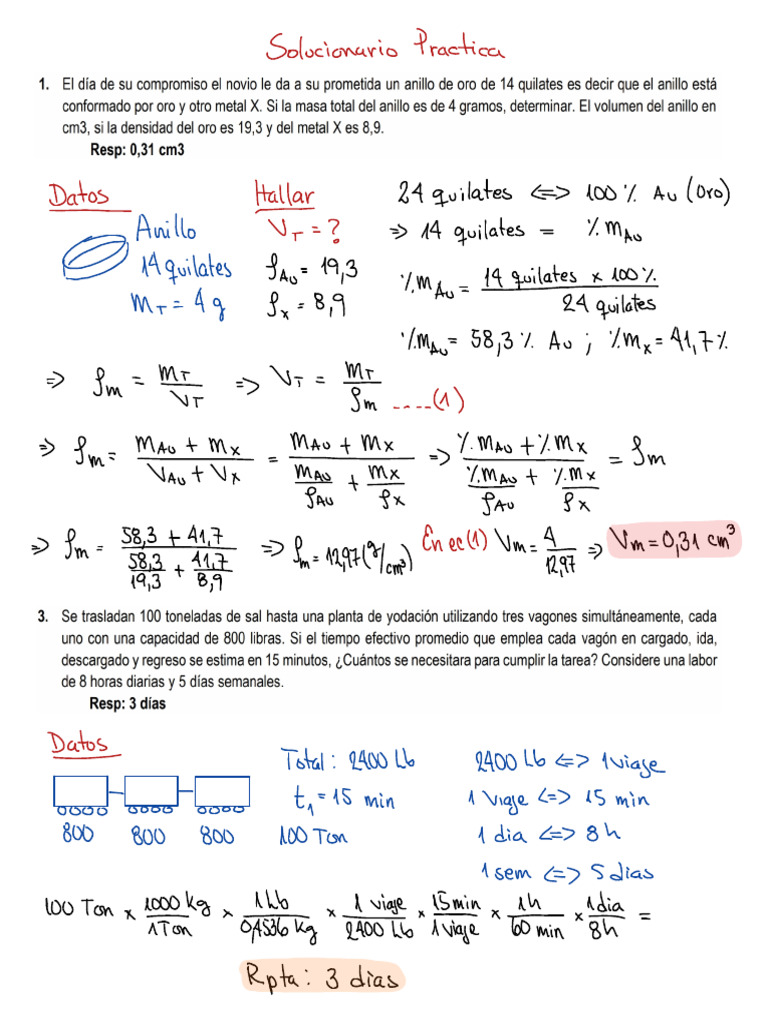 Solucionario Practica
1. El día de su compromiso el novio le da a su prometida un anillo de oro de 14 quilates es decir que el anillo está
conformado por oro y otro metal X. Si la masa total del anillo es de 4 gramos, determinar. El volumen del anillo en
cm3, si la densidad del oro es 19,3 y del metal X es 8,9.
Resp: 0,31 cm3
Datos
Anillo
14 quilates
m_T = 4 g
Hallar
V_T = ?
ρ_Au = 19,3
ρ_x = 8,9
24 quilates <=> 100 % Au (Oro)
=> 14 quilates = % m_Au
% m_Au = (14 quilates x 100 %) / (24 quilates)
% m_Au = 58,3 % Au ; % m_x = 41,7 %
=> ρ_m = m_T / V_T => V_T = m_T / ρ_m ....(1)
=> ρ_m = (m_Au + m_x) / (V_Au + V_x) = (m_Au + m_x) / (m_Au/ρ_Au + m_x/ρ_x) => (% m_Au + % m_x) / (% m_Au/ρ_Au + % m_x/ρ_x) = ρ_m
=> ρ_m = (58,3 + 41,7) / (58,3/19,3 + 41,7/8,9) => ρ_m = 12,97 (g/cm³) En ec (1) V_m = 4 / 12,97 => V_m = 0,31 cm³
3. Se trasladan 100 toneladas de sal hasta una planta de yodación utilizando tres vagones simultáneamente, cada
uno con una capacidad de 800 libras. Si el tiempo efectivo promedio que emplea cada vagón en cargado, ida,
descargado y regreso se estima en 15 minutos, ¿Cuántos se necesitara para cumplir la tarea? Considere una labor
de 8 horas diarias y 5 días semanales.
Resp: 3 días
Datos
800 800 800
Total : 2400 Lb
t_1 = 15 min
100 Ton
2400 Lb <=> 1 viaje
1 Viaje <=> 15 min
1 dia <=> 8 h
1 sem <=> 5 dias
100 Ton x 1000 kg / 1 Ton x 1 Lb / 0,4536 kg x 1 viaje / 2400 Lb x 15 min / 1 viaje x 1h / 60 min x 1 dia / 8h =
Rpta : 3 dias